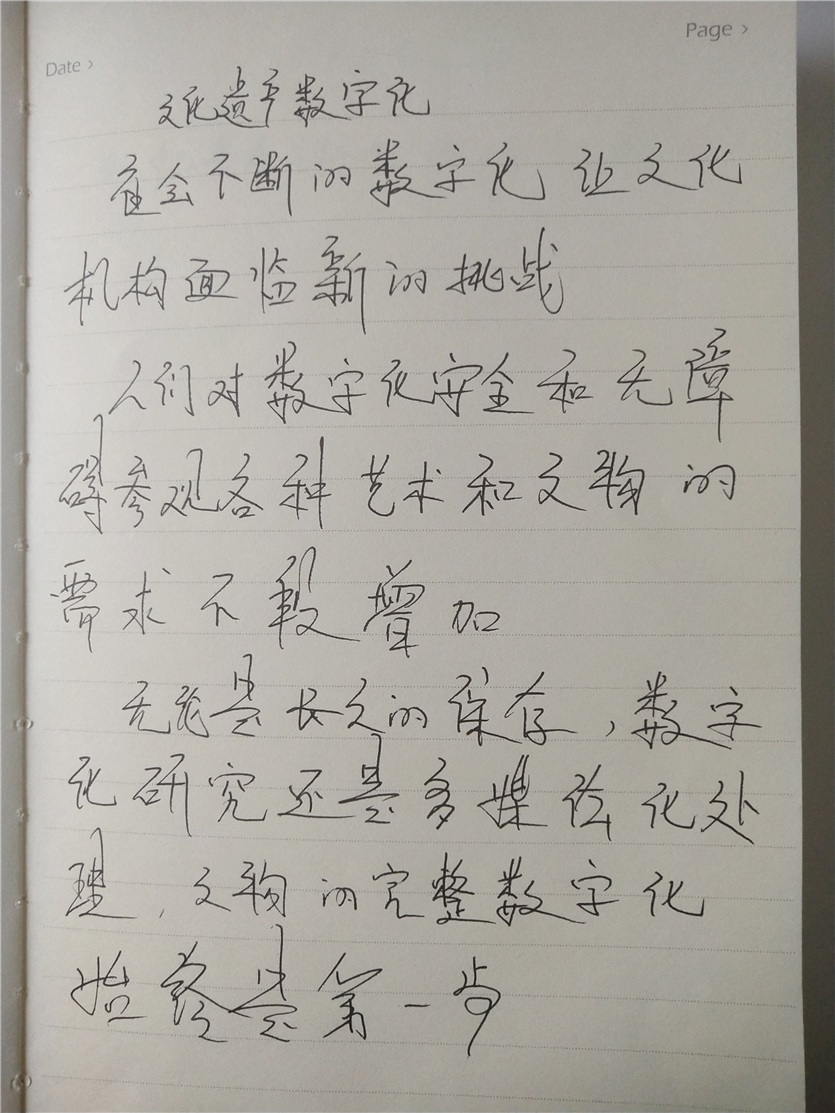 Page >
Date >
文化遗产数字化
社会不断的数字化让文化
机构面临新的挑战
人们对数字化安全和无障
碍参观各种艺术和文物的
需求不段增加
无论是长久的保存，数字
化研究还是多媒体化处
理，文物的完整数字化
始终是第一步